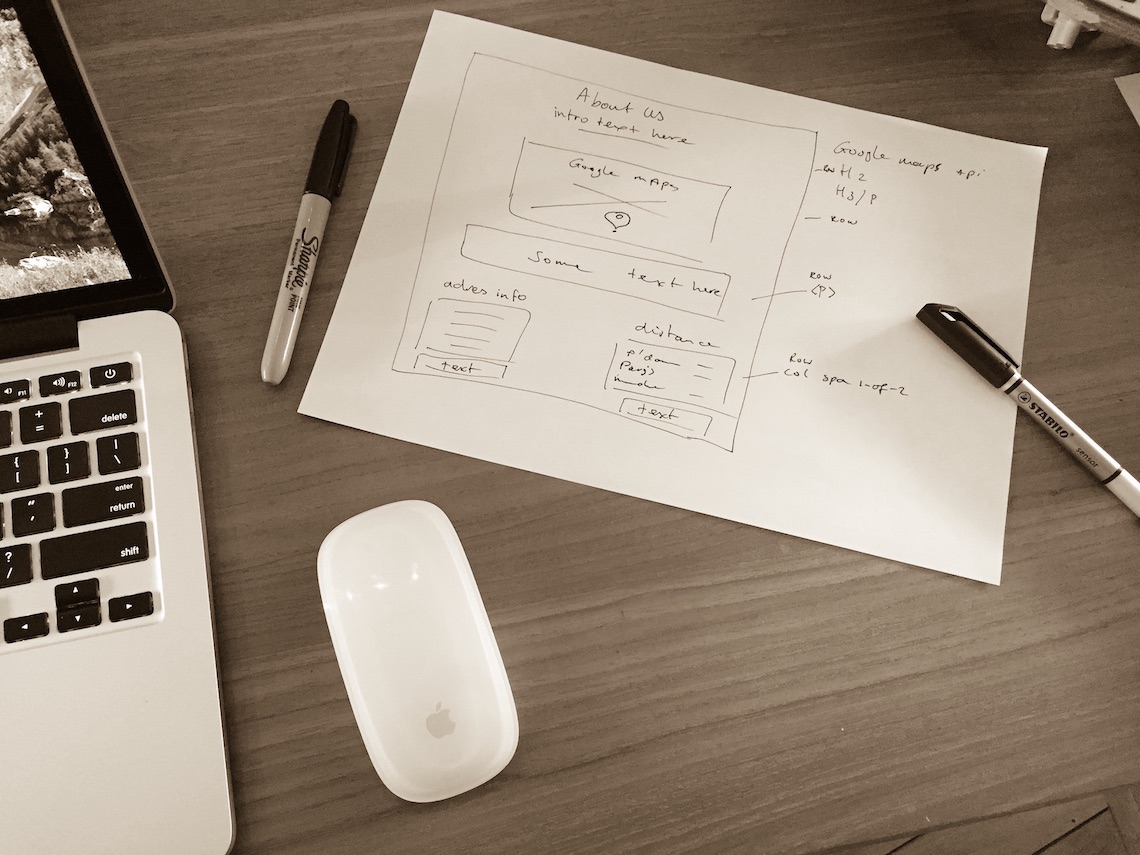 About us
intro text here
Google maps
Some text here
adres info
text
distance
text
Google maps api
H2
H3/P
Row
Row
<P>
Row
col spa 1-of-2
Sharpie
FINE POINT
STABILO
sensor
F11
F12
+
=
delete
{
[
}
]
|
\
"
'
enter
return
?
/
shift